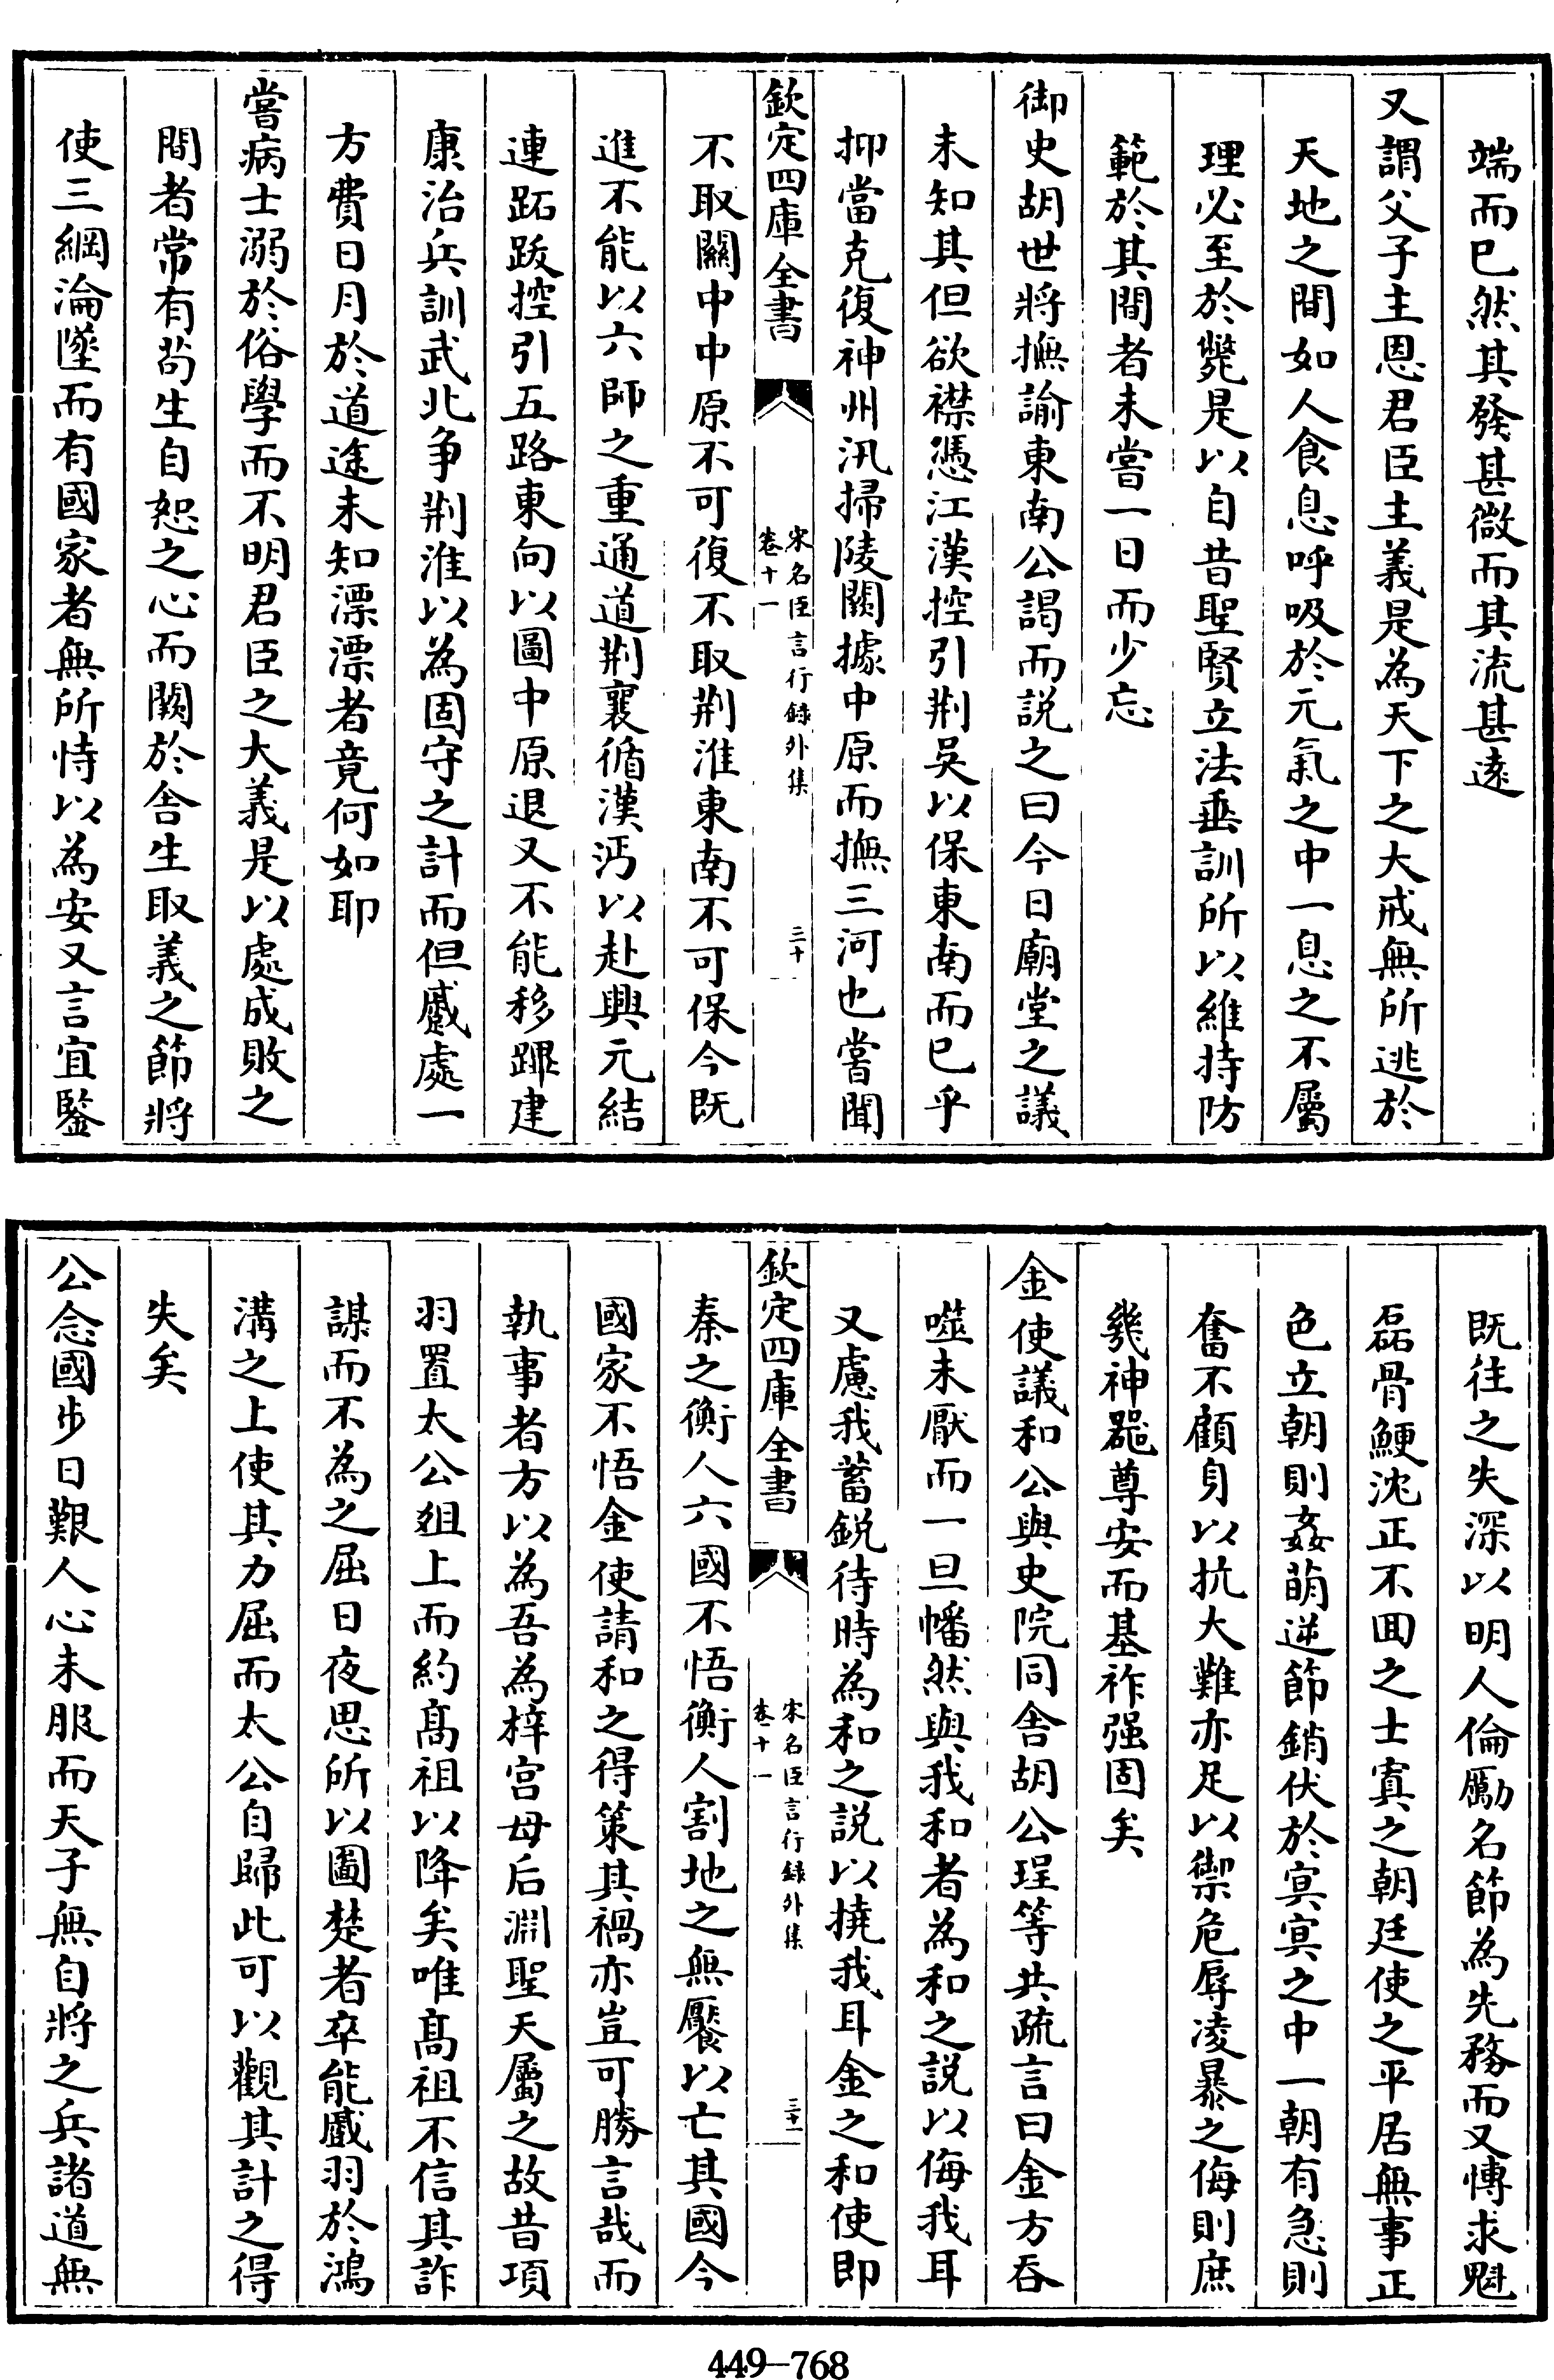 端而已然其發甚微而其流甚遠
又謂父子主恩君臣主義是為天下之大戒無所逃於
天地之間如人食息呼吸於元氣之中一息之不屬
理必至於斃是以自昔聖賢立法垂訓所以維持防
範於其間者未嘗一日而少忘
御史胡世將撫諭東南公謁而説之曰今日廟堂之議
未知其但欲襟憑江漢控引荆吳以保東南而已乎
抑當克復神州汛掃陵闕據中原而撫三河也嘗聞
欽定四庫全書
宋名臣言行録外集
卷十一
三十
不取關中中原不可復不取荆淮東南不可保今既
進不能以六師之重通道荆襄循漢沔以赴興元結
連跖跋控引五路東向以圖中原退又不能移蹕建
康治兵訓武北争荆淮以為固守之計而但蹙處一
方費日月於道途未知漂漂者竟何如耶
嘗病士溺於俗學而不明君臣之大義是以處成敗之
間者常有苟生自恕之心而闕於舍生取義之節將
使三綱淪墜而有國家者無所恃以為安又言宜鑒
既往之失深以明人倫勵名節為先務而又博求魁
磊骨鯁沈正不囬之士寘之朝廷使之平居無事正
色立朝則姦萌逆節銷伏於冥冥之中一朝有急則
奮不顧身以抗大難亦足以禦危辱凌暴之侮則庶
幾神噐尊安而基祚强固矣
金使議和公與史院同舍胡公珵等共疏言曰金方吞
噬未厭而一旦幡然與我和者為和之説以侮我耳
又慮我蓄鋭待時為和之説以撓我耳金之和使即
欽定四庫全書
宋名臣言行録外集
卷十一
三十一
秦之衡人六國不悟衡人割地之無饜以亡其國今
國家不悟金使請和之得策其禍亦豈可勝言哉而
執事者方以為吾為梓宫母后淵聖天屬之故昔項
羽置太公俎上而約髙祖以降矣唯髙祖不信其詐
謀而不為之屈日夜思所以圖楚者卒能蹙羽於鴻
溝之上使其力屈而太公自歸此可以觀其計之得
失矣
公念國步日艱人心未服而天子無自將之兵諸道無
449—768